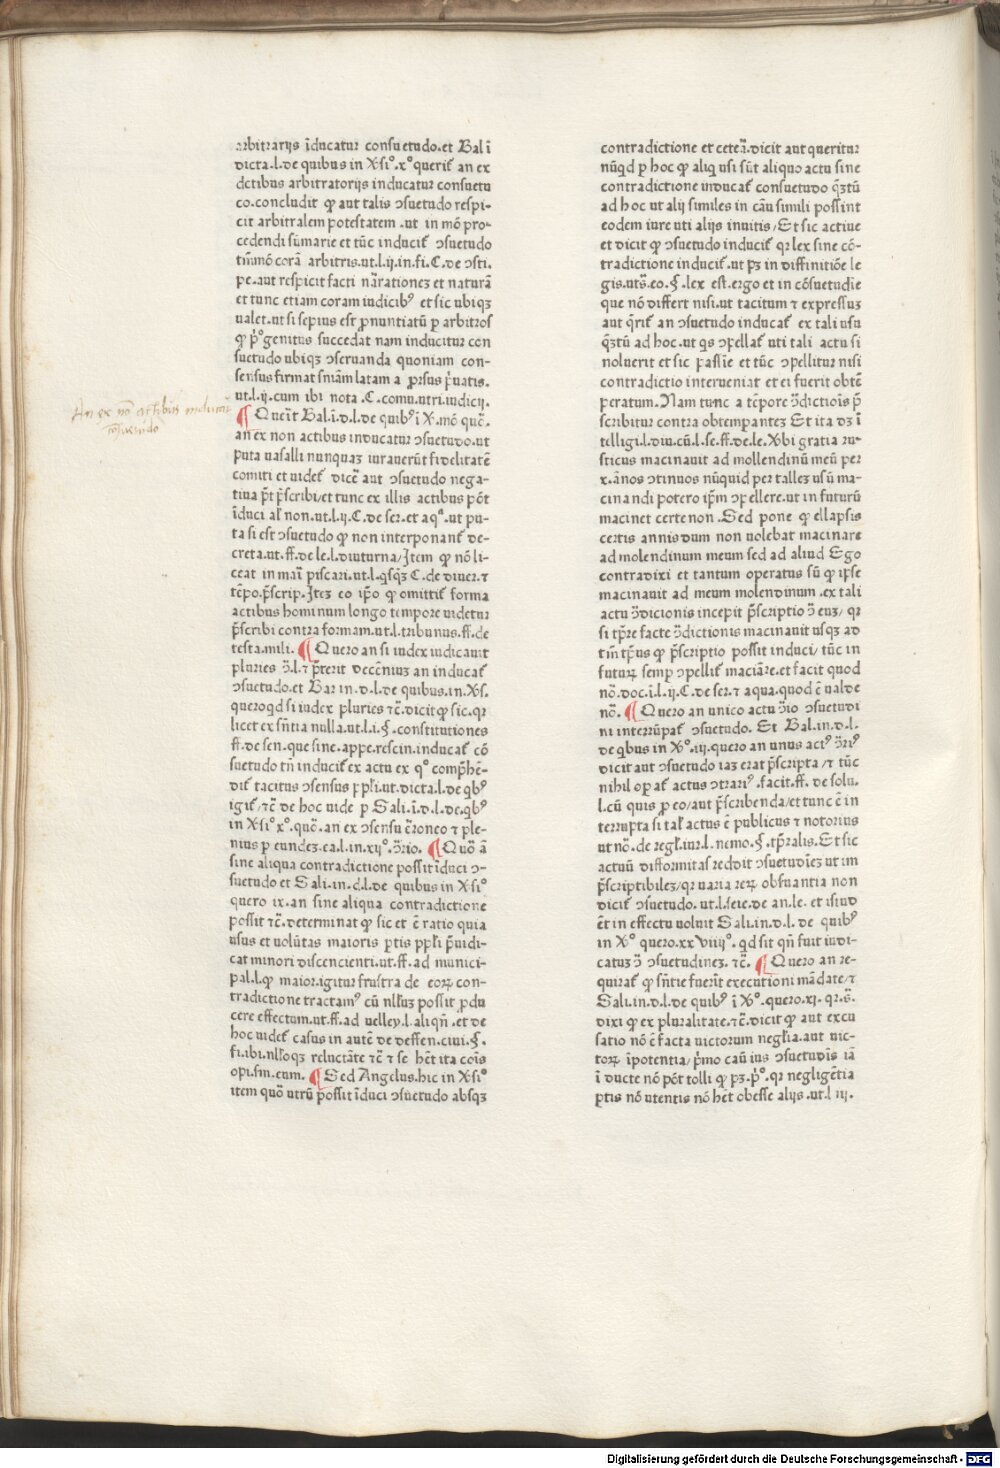 arbitrarijs īducatur consuetudo.et Bal ī
dicta.l.de quibus in X.si°.x° querit̄ an ex
dctibus arbitratorijs inducatur consuetu
co.concludit ꝙ aut talis ↄsuetudo respi-
cit arbitralem potestatem .ut in mō pro-
cedendi sūmarie et tūc inducit̄ ↄsuetudo
tm̄mō corā arbitris.ut.l.ij.in.fi.C.de ↄsti.
pe.aut respicit facti narrationeꝫ et naturā
et tunc etiam coram iudicibꝰ et sic ubiqꝫ
ualet.ut si sepius est ꝓnuntiatū ꝑ arbitros
ꝙ p̄°genitus succedat nam inducitur con
suetudo ubiqꝫ ↄseruanda quoniam con-
sensus firmat sniam latam a ꝓisus p̄uatis.
ut.l.ij.cum ibi nota .C.comu.utri.iudicij.
An ex nō actibus inducat̄
cōsuetudo
¶ Querit Bal.ī.d.l.de quibꝰ ī X.mō quē.
an ex non actibus inducatur ↄsuetudo.ut
puta uasalli nunquaꝫ iurauerūt fidelitatē
comiti et uidet̄ dicē aut ↄsuetudo nega-
tiua p̄t p̄scribi/et tunc ex illis actibus pōt
īduci al̄ non.ut.l.ij.C.de ser.et aqᵃ.ut pu-
ta si est ↄsuetudo ꝙ non interponant̄ de-
creta.ut.ff.de le.l.diuturna/Item ꝙ nō li-
ceat in mari piscari.ut.l.qsqꝫ C.de diuer.⁊
tēpo.p̄scrip.Iteꝫ eo ip̄o ꝙ omittit̄ forma
actibus hominum longo tempore uidetur
p̄scribi contra formam.ut.l.tribunus.ff.de
testa.mili. ¶ Quero an si iudex iudicauit
pluries ↄ̄.l.⁊ p̄terit decenniuꝫ an inducat̄
ↄsuetudo.et Bar in .d.l.de quibus.in.X.s.
quero qd si iudex pluries ⁊c̄.dicit ꝙ sic.qr
licet ex sn̄tia nulla.ut.l.i.§.constitutiones
ff.de sen.que sine.appe.rescin.inducat̄ cō
suetudo tn̄ inducit̄ ex actu ex q° comp̄hē-
dit̄ tacitus ↄsensus ꝓpl̄i.ut.dicta.l.de qbꝰ
igit̄/⁊c̄ de hoc uide ꝑ Sali.ī.d.l.de.qbꝰ
in X.si° x°.quō.an ex ↄsensu erroneo ⁊ ple-
nius ꝑ eundeꝫ.ea.l.in.xij°.ↄ̄rio. ¶ Quō ā
sine aliqua contradictione possit īduci ↄ-
suetudo et Sali.in.d.l.de quibus in X.si°
quero ix.an sine aliqua contradictione
possit ⁊c̄.determinat ꝙ sic et ē ratio quia
usus et uolūtas maioris ꝑtis ppl̄i p̄iudi-
cat minori discencienti.ut.ff.ad munici-
pal.l.ꝙ maior.igitur frustra de eoꝝ con-
tradictione tractamꝰ cū nll̄uꝫ possit ꝓdu
cere effectum.ut.ff.ad uelley.l.aliqn̄.et de
hoc uidet̄ casus in autē de deffen.ciui.§.
fi.ibi.nll̄oqꝫ reluctāte ⁊c̄ ⁊ se hēt ita cōis
opi.sm.eum. ¶ Sed Angelus.hic in X.si°
item quō utrū possit īduci ↄsuetudo absqꝫ
contradictione et ceterā.dicit aut queritur
nūqd ꝑ hoc ꝙ aliq usi sūt aliquo actu sine
contradictione inducat̄ consuetudo qꝫtū
ad hoc ut alij similes in cāu simili possint
eodem iure uti alijs inuitis/Et sic actiue
et dicit ꝙ ↄsuetudo inducit̄ qr lex sine cō-
tradictione inducit̄.ut pꝫ in diffinitiōe le
gis.uts̄.eo.§.lex est.ergo et in cōsuetudie
que nō differt nisi.ut tacitum ⁊ expressuꝫ
aut qrit̄ an ↄsuetudo inducat̄ ex tali usu
qꝫtū ad hoc.ut qs ↄpellat̄ uti tali actu si
noluerit et sic passiē et tūc ↄpellitur nisi
contradictio interueniat et ei fuerit obtē
peratum.Nam tunc a tēpore ↄ̄dictiois p̄
scribitur contra obtempanteꝫ Et ita dꝫ ī
telligi.l.diu.cū.l.se.ff.de.le.Xbi gratia ru-
sticus macinauit ad mollendinū meū per
x.ānos ↄtinuos nūquid per talleꝫ usū ma-
cinandi potero ip̄m ↄpellere.ut in futurū
macinet certe non .Sed pone ꝙ ellapsis
certis annis dum non uolebat macinare
ad molendinum meum sed ad aliud Ego
contradixi et tantum operatus sū ꝙ ipse
macinauit ad meum molendinum .ex tali
actu ↄ̄dicionis incepit p̄scriptio ↄ̄ euꝫ/ qr
si tp̄re facte ↄ̄dictionis macinauit usqꝫ ad
tm̄ tp̄us ꝙ p̄scriptio possit induci/ tūc in
futuꝝ semꝑ ↄpellit̄ maciāre.et facit quod
nō.doc.ī.l.ij.C.de ser.⁊ aqua.quod ē ualde
nō. ¶ Quero an unico actu ↄ̄io ↄsuetudi
ni interrūpat̄ ↄsuetudo. Et Bal.in.d.l.
de qbus in X°.iij.quero an unus actꝰ ↄ̄riꝰ
dicit aut ↄsuetudo iaꝫ erat p̄scripta/⁊ tūc
nihil opat̄ actus ↄtrariꝰ.facit.ff. de solu.
l.cū quis ꝓ eo/aut p̄scribenda/et tunc ē in
terrupta si tal̄ actus ē publicus ⁊ notorius
ut nō.de regl̄.iur.l.nemo.§.tp̄ralis.Et sic
actuū difformitas reddit ↄsuetudīeꝫ ut im
p̄scriptibileꝫ/qr uaria reꝝ obs̄uantia non
dicit̄ ↄsuetudo.ut.l.seie.de an.le. et istud
ēt in effectu uoluit Sali.in.d.l. de quibꝰ
in X° quero.xxviiij°. qd sit qn̄ fuit iudi-
catuꝫ ↄ̄ ↄsuetudineꝫ. ⁊c̄. ¶ Quero an re-
quirat̄ ꝙ sn̄tie fuerit executioni mādate/⁊
Sali.in.d.l.de quibꝰ ī X°.quero.xj. qr.s̄.
dixi ꝙ ex pluralitate.⁊c̄.dicit ꝙ aut excu
satio nō ē facta uictorum negl̄ia.aut uic-
toꝝ īpotentia/ p̄mo cāu ius ↄsuetudīs iā
ī ducte nō pōt tolli ꝙ pꝫ.p̄°.qr negligētia
ꝑtis nō utentis nō hēt obesse alijs .ut.l iij.
Digitalisierung gefördert durch die Deutsche Forschungsgemeinschaft - DFG